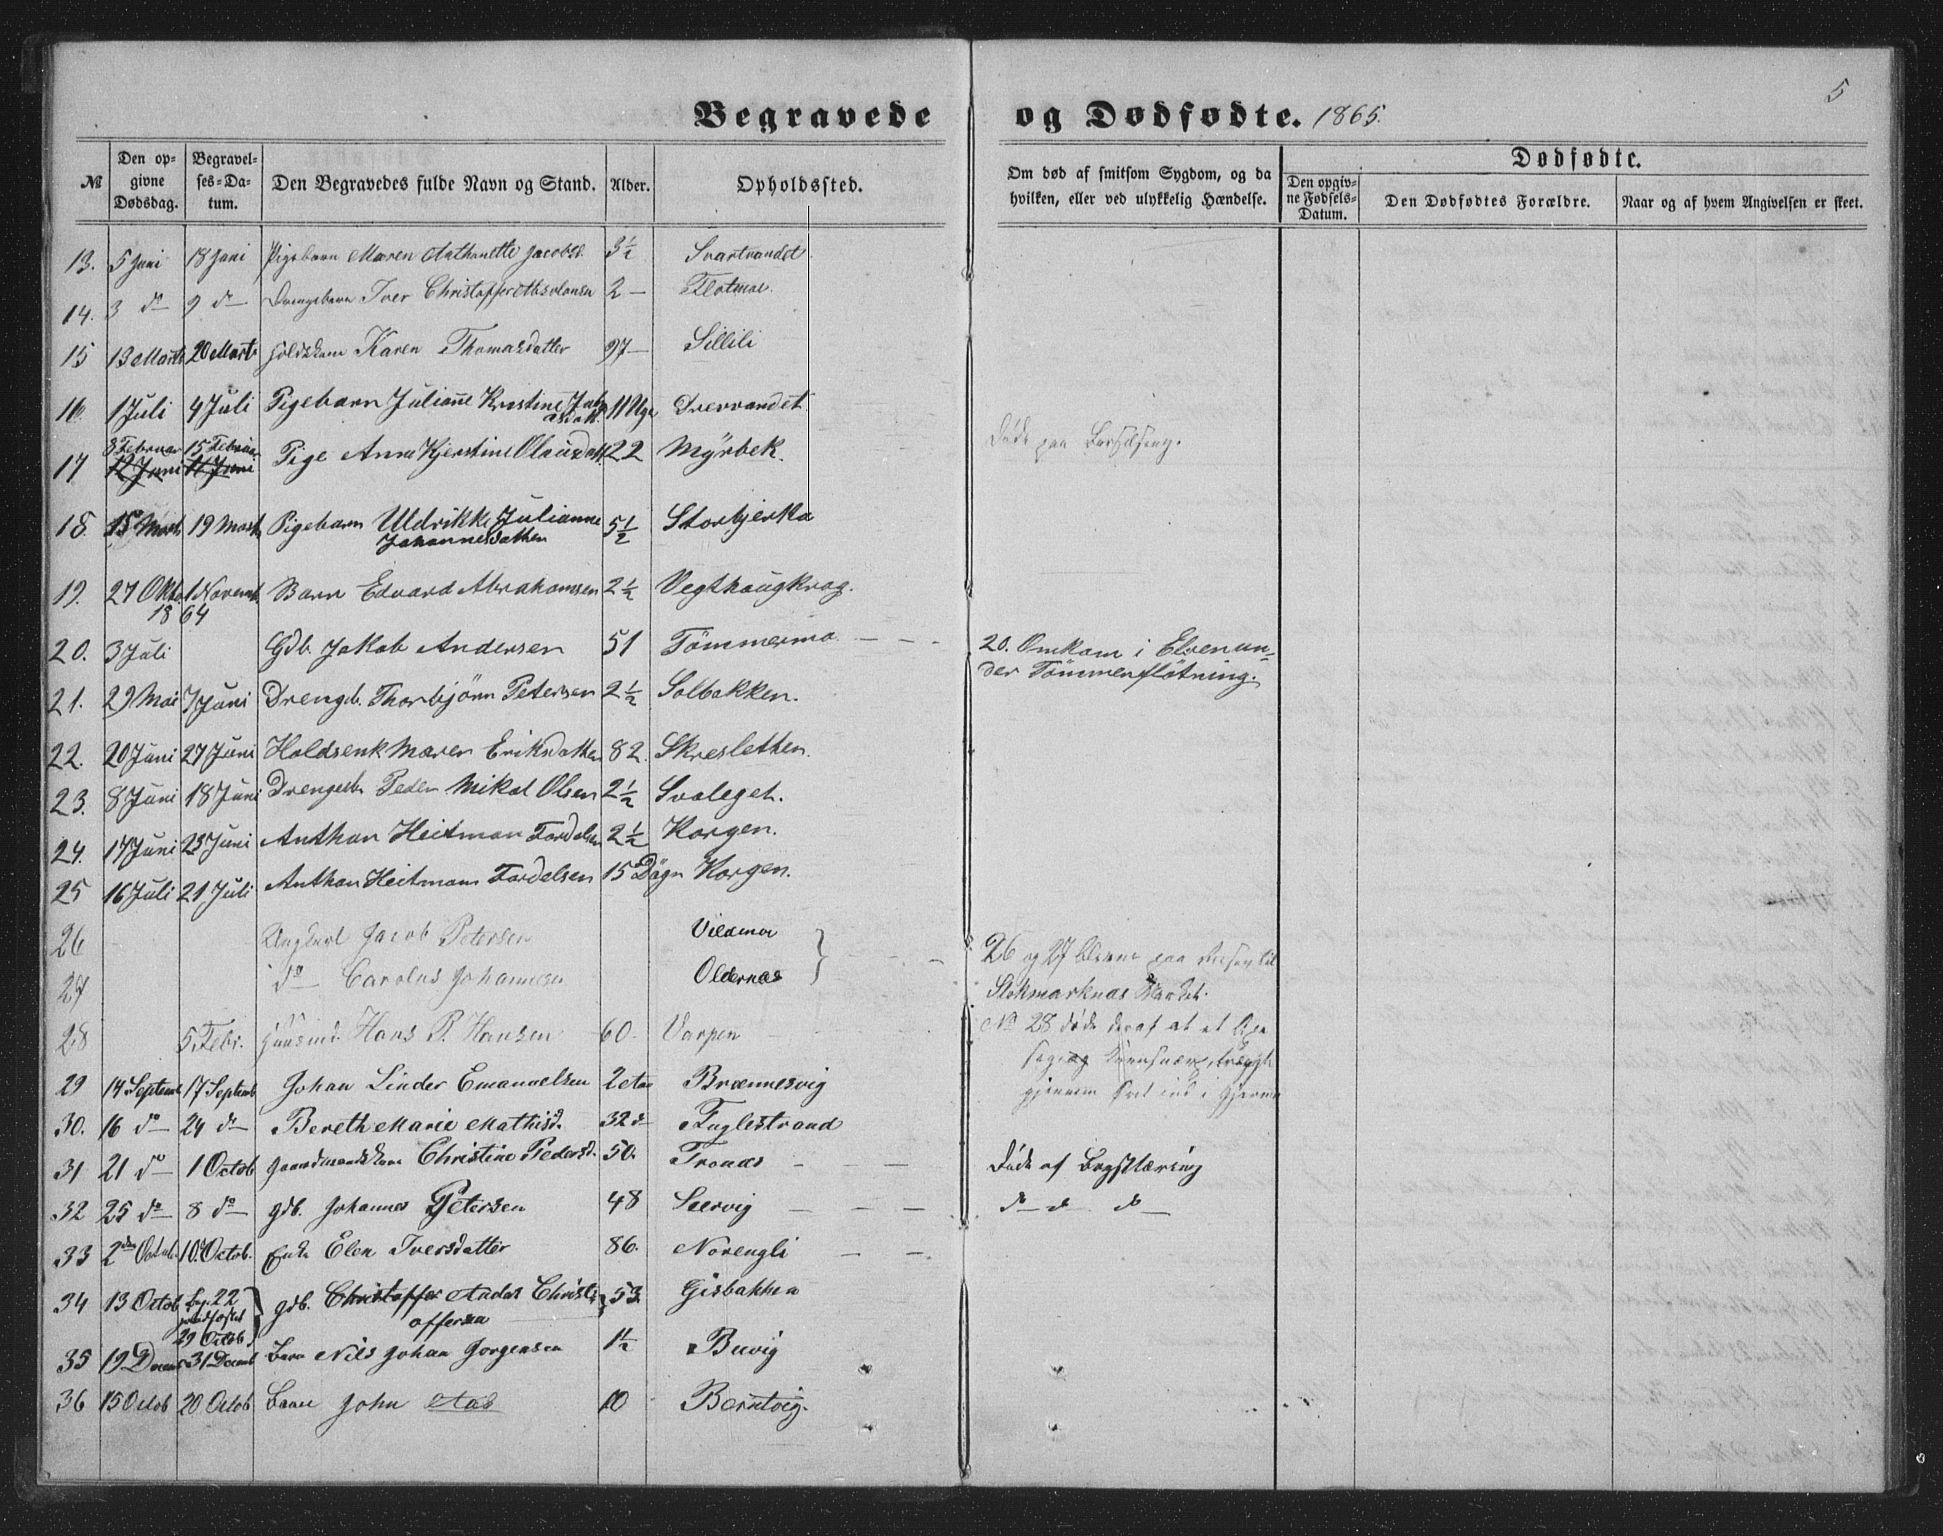 5
Begravede og Dødfødte. 1865.
№ Den opgivne Dødsdag. Begravelses-Datum. Den Begravedes fulde Navn og Stand. Alder. Opholdssted. Om død af smitsom Sygdom, og da hvilken, eller ved ulykkelig Hændelse. Dødfødte. Den opgivne Fødsels-Datum. Den Dødfødtes Forældre. Naar og af hvem Angivelsen er skeet.
13. 5 Juni 18 Juni Pigebarn Maren Anthonette Jacobsd. 3½ Svartvandet
14. 3 do 9 do Drengebarn Iver Christoffer 2 — Flotmoe.
15 13 Marts 20 Marts Karen Thomasdatter 97 — Sillili
16 1 Juli 4 Juli Pigebarn Julianne Kristine 11 Uge Drevvandet
17 8 Februar 15 Februar Pige Anna Kjerstine Olausdatt. 22 Myrbek. Døde paa Barselseng.
12 Juni Juni
18. 15 Marts 19 Marts Pigebarn Uldrikke Julianne 5½ Storbjerka
Johannesdatter
19. 27 Okto 1 Novemb. Barn Edvard Abrahamsen 2½ Vegthougkrog.
1864
20. 3 Juli Gdb. Jakob Andersen 51 Tömmermo — — - 20. Omkom i Elven un=
der Tömmerflötning.
21. 29 Mai 7 Juni Drengb. Thorbjörn Petersen 2½ Solbakken.
22. 20 Juni 27 Juni Holdsenk Maren Eriksdatter 82. Skresletten.
23. 8 Juni 18 Juni Drengeb. Peder Mikal Olsen 2½ Svaleget.
24. 17 Juni 23 Juni Anthon Heitman Tordelsen 2½ Korgen.
25 16 Juli 21 Juli Anthon Heitmann Tordelsen 15 Dägn Korgen.
26 Ungkarl Jacob Petersen Vildmoe
27 do Carolus Johannesen Oldernæs 26 og 27 bleve paa Reisen til
Stokmarknæs Markedet.
28 5. Febr. Huusmd. Hans P. Hansen 60. Varpen No 28 døde deraf at et
gjennem Øret ind i Hjernen
29 14 Septemb 17 Septemb Johan Linder Emanuelsen 2 Aar Brænnesvig
30. 16 do 24 do Bereth Marie Mathisd. 32 do Fuglestrand
31 21 do 1 Octob Gaardmandskone Christine Pedersd. 50. Tronæs — — Døde af Brystlæring
32 25 do 8 do gdb. Johannes Petersen 48 Leervig — — — do do do
33 2den Octob. 10de Octob. Enke Elen Iversdatter 86. Norengli — —
34 13 Octob beg. 22 gdb. Christoffer Andas Christ- 53. Gisbakken
jordfæstet offersen
29 Octob
35 19 Decemb 31 Decemb Barn Nils Johan Jorgensen 1½ Buvig
36 15 Octob 20 Octob Barn John Aas 10 Berntvig.